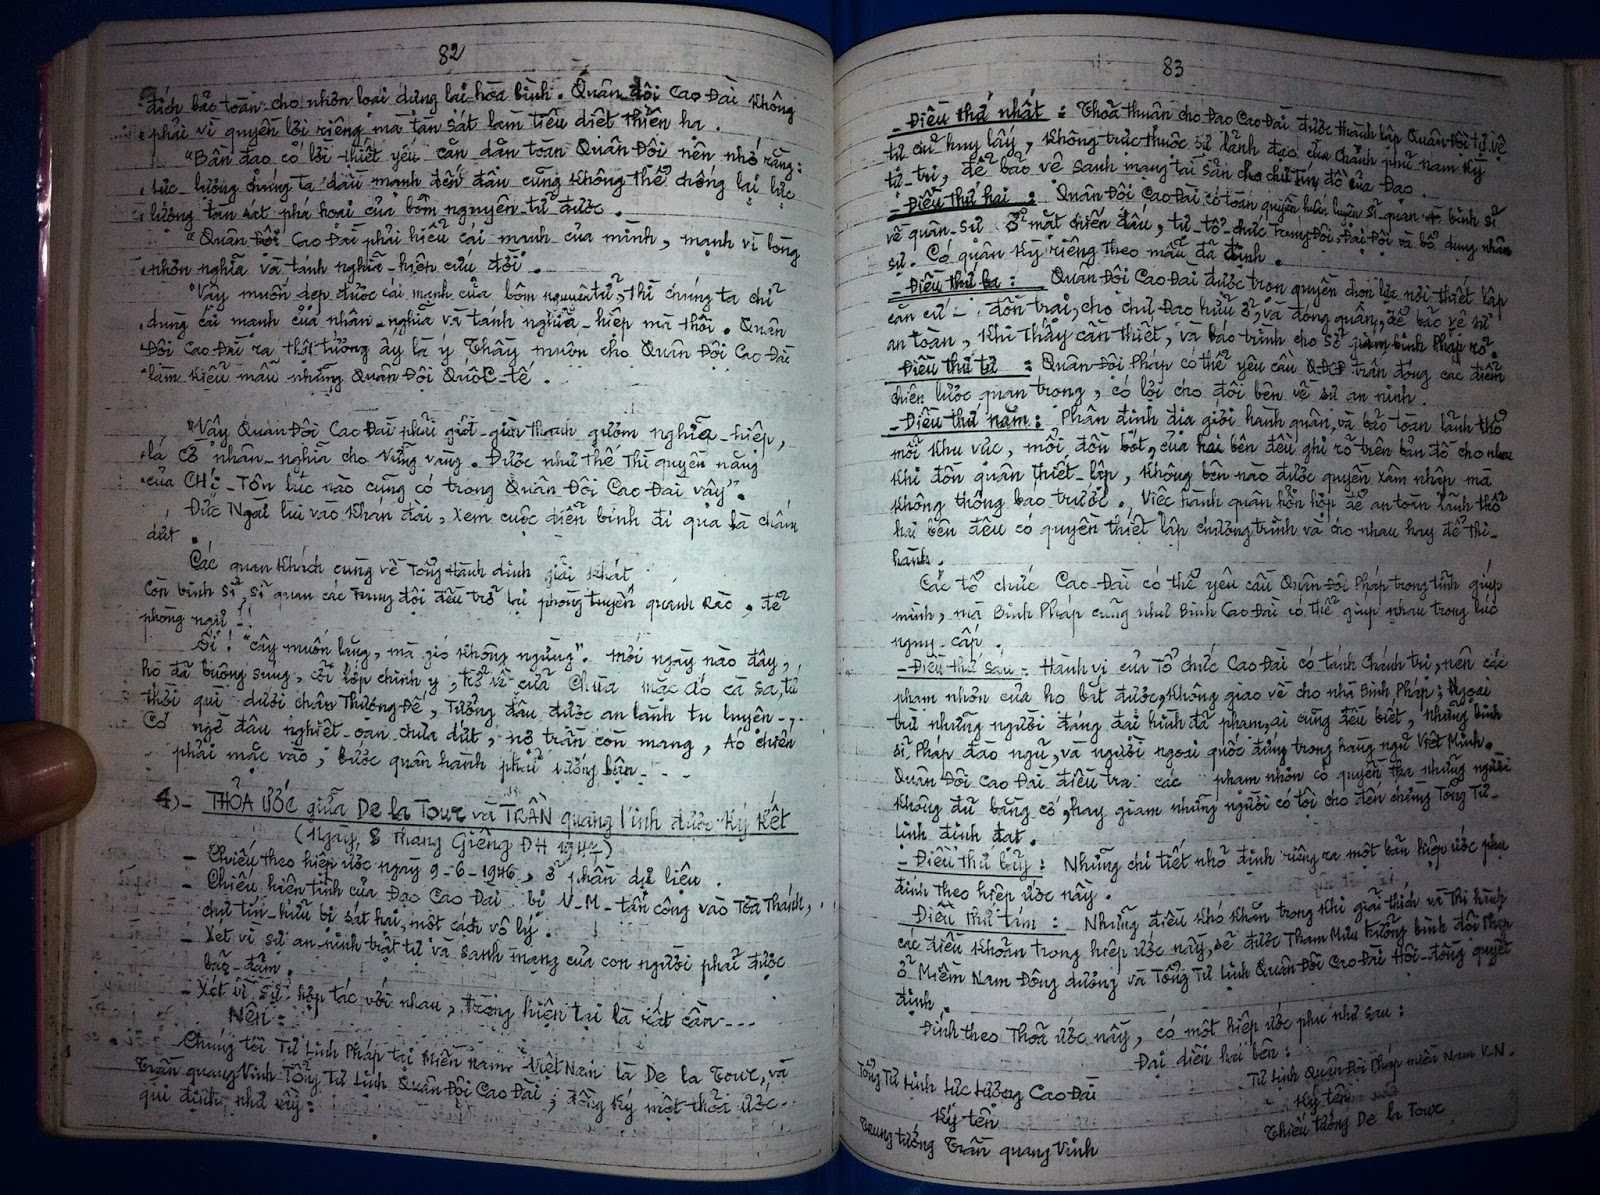 82
đích bảo toàn cho nhơn loại đứng lại hòa bình. Quân đội Cao Đài không
phải vì quyền lợi riêng mà tàn sát làm tiêu diệt thiên hạ.
"Bần đạo có lời thiết yếu căn dặn toàn Quân Đội nên nhớ rằng:
Lực lượng chúng ta dầu mạnh đến đâu cũng không thể chống lại lực
lượng tàn sát phá hoại của bom nguyên-tử được.
"Quân Đội Cao Đài phải hiểu cái mạnh của mình, mạnh vì lòng
nhơn nghĩa và tánh nghĩa-hiệp cứu đời.
"Vậy muốn dẹp được cái mạnh của bôm nguyên tử, thì chúng ta chỉ
dùng cái mạnh của nhân-nghĩa và tánh nghĩa-hiệp mà thôi. Quân
Đội Cao Đài ra thời tướng ấy là ý Thầy muốn cho Quân Đội Cao Đài
làm kiểu mẫu những Quân Đội Quốc-tế.
"Vậy Quân Đội Cao Đài phải giữ-gìn thanh gươm nghĩa-hiệp,
lá cờ nhân-nghĩa cho vững vàng. Được như thế thì quyền năng
của CHÍ-Tôn lúc nào cũng có trong Quân Đội Cao Đài vậy".
Đức Ngài lui vào khán đài, xem cuộc diễn binh đi qua là chấm
dứt.
Các quan khách cùng về Tổng Hành dinh giải khát
Còn binh sĩ, sĩ quan các Trung đội đều trở lại phòng tuyến quanh Rào, để
phòng ngự!
Ôi! "Cây muốn lặng, mà gió không ngừng". Mới ngày nào đây,
họ đã buông súng, cởi lớp chinh y, trở về cửa Chùa mặc áo cà sa, từ
thời quì dưới chân Thượng Đế, Tưởng đâu được an lành tu luyện-,
Có ngờ đâu nghiệt-oan chưa dứt, nợ trần còn mang, Áo chiến
phải mặc vào, bước quân hành phải sương bận...
4)- THỎA ƯỚC giữa De la Tour và TRẦN quang Vinh được Ký Kết
(Ngày 8 Tháng Giêng DH 1947)
- Chiếu theo hiệp ước ngày 9-6-1946, ở phần dữ liệu.
- Chiếu hiện tình của Đạo Cao Đài bị V-M-tấn công vào Tòa Thánh,
chư tín-hữu bị sát hại, một cách vô lý.
- Xét vì sự an-ninh trật tự và sanh mạng của con người phải được
bảo-đảm.
- Xét vì sự hợp tác với nhau, trong hiện tại là rất cần---
Nên:
Chúng tôi Tư Linh Pháp tại Miền nam-Việt Nam là De la Tour, và
Trần quang Vinh Tổng Tư Linh Quân Đội Cao Đài, đồng ký một thỏa ước..
qui định như vầy:
83
- Điều thứ nhất: Thỏa thuận cho Đạo Cao Đài được thành lập Quân Đội tự vệ
tự chỉ huy lấy, không trực thuộc sự lãnh đạo của Chánh phủ nam Kỳ
tự-trị, để bảo vệ sanh mạng tài sản cho chư Tín đồ của Đạo.
- Điều thứ hai: Quân Đội Cao Đài có toàn quyền huấn luyện sĩ-quan binh sĩ
về quân-sự. Ở mặt chiến đấu, tự-tổ-chức Trung Đội, Đại Đội và bổ dụng nhân
sự. Có quân kỳ riêng theo mẫu đã định.
- Điều thứ ba: Quân Đội Cao Đài được trọn quyền chọn lựa nơi thiết lập
căn cứ-: đồn trại, cho chư Đạo hữu ở, và đóng quân, để bảo vệ sự
an toàn, khi thấy cần thiết, và báo trình cho Sở binh Pháp rõ.
Điều thứ tư: Quân Đội Pháp có thể yêu cầu QĐCĐ trấn đóng các điểm
chiến lược quan trọng, có lợi cho đôi bên về sự an ninh.
- Điều thứ năm: Phân định địa giới hành quân, và bảo toàn lãnh thổ
mỗi khu vực, mỗi đồn bót, của hai bên đều ghi rõ trên bản đồ cho nhau
khi đồn quân thiết-lập, không bên nào được quyền xâm nhập mà
không thông báo trước. Việc hành quân hỗn hợp để an toàn lãnh thổ
hai bên đều có quyền thiết lập chương trình và cho nhau hay để thi-
hành.
Các tổ chức Cao-Đài có thể yêu cầu Quân Đội Pháp trong tỉnh giúp
mình, mà Binh Pháp cũng như Binh Cao Đài có thể giúp nhau trong lúc
nguy-cấp.
- Điều thứ sáu: Hành vi của Tổ chức Cao Đài có tánh Chánh trị, nên các
phạm nhơn của họ bắt được, không giao về cho nhà Binh Pháp: Ngoại
trừ những người đáng đại hình đã phạm, ai cũng đều biết, những binh
sĩ Pháp đào ngũ, và người ngoại quốc đứng trong hàng ngũ Việt Minh.
Quân Đội Cao Đài điều tra các phạm nhơn có quyền tha những người
không đủ bằng cớ, hay giam những người có tội cho đến chừng Tổng Tư-
Linh định đạt.
- Điều thứ bảy: Những chi tiết nhỏ định riêng ra một bản hiệp ước phụ
đính theo hiệp ước này.
Điều thứ tám: Những điều khó khăn trong khi giải thích và thi hành
các điều khoản trong hiệp ước này, sẽ được Tham Mưu trưởng binh đội Pháp
ở Miền Nam Đông dương và Tổng Tư Linh Quân Đội Cao Đài Hội-đồng quyết
định.
Đính theo Thỏa ước nầy, có một hiệp ước phụ như sau:
Đại diện hai bên:
Tổng Tư Linh Lực Lượng Cao Đài
Ký tên
Trung tướng Trần quang Vinh
Tư Linh Quân Đội Pháp miền Nam V.N.
Ký tên
Thiếu tướng De la Tour